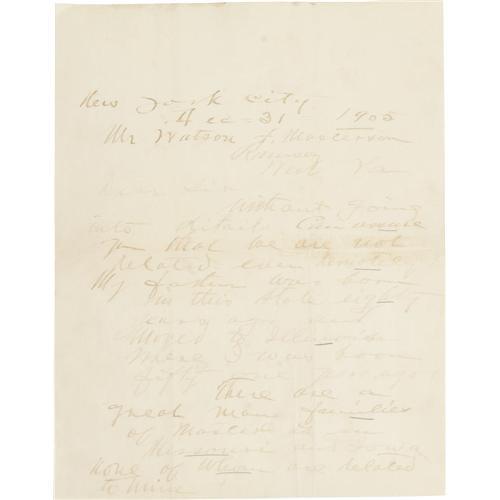 New York City
Dec 31 1905
Mr Watson J. Masterson
Romney
West Va
Dear Sir
Without going
into details I can assure
you that we are not
related even remotely
My father was born
in this State eighty
years ago and
moved to Illinois
where I was born
fifty one years ago
There are a
great many families
of Masterson in
Missouri and Iowa
none of whom are related
to mine